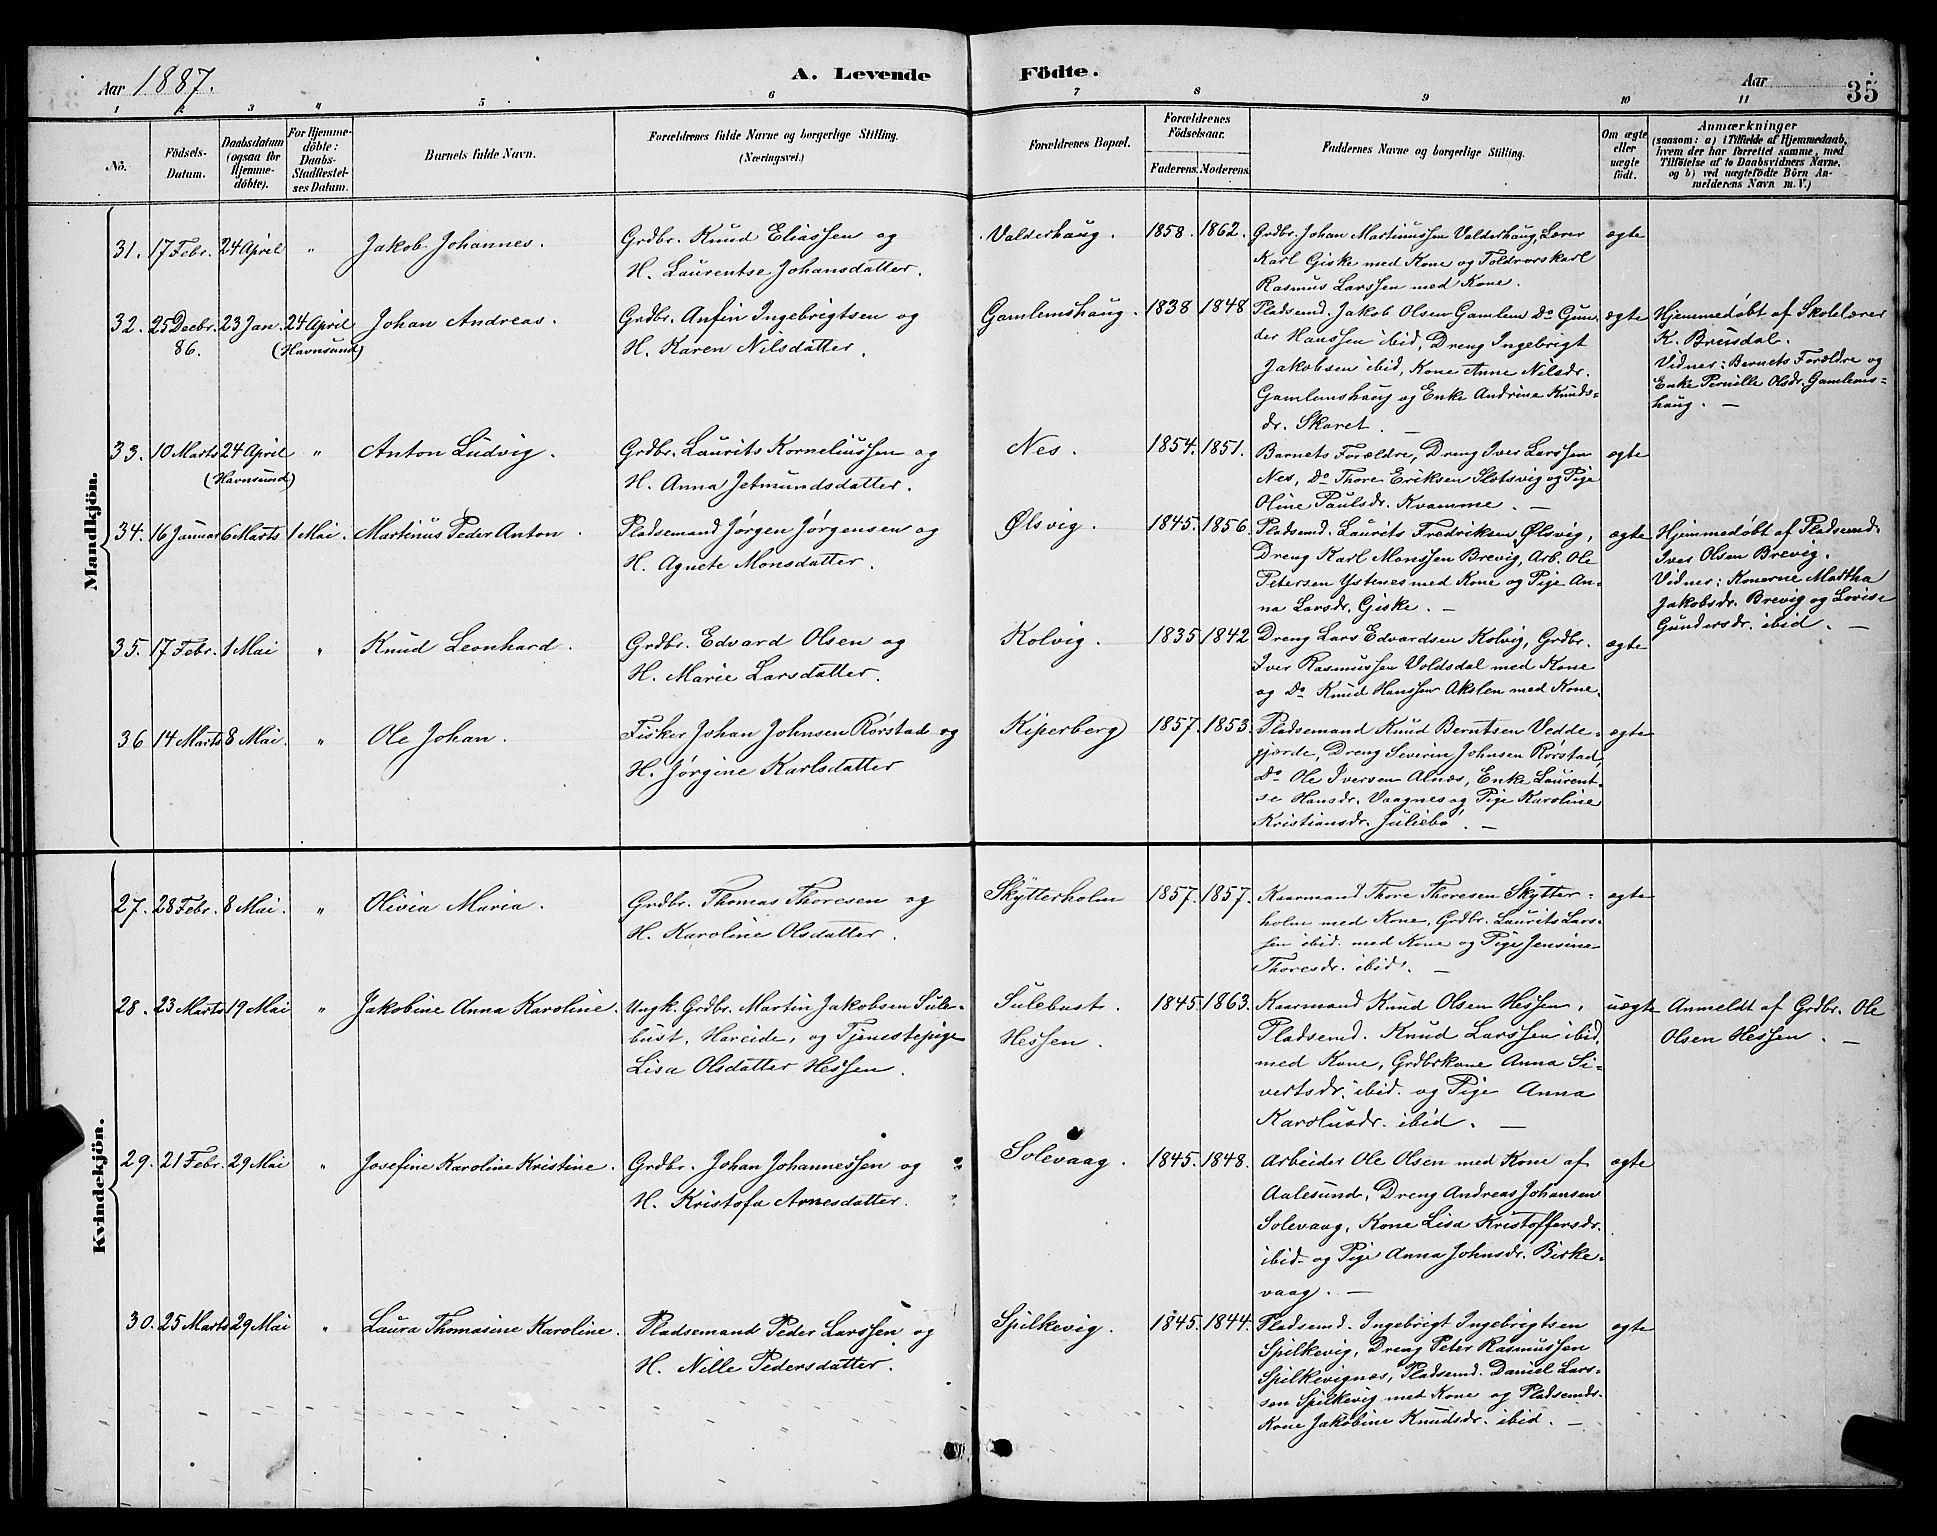 Aar 1887. A. Levende Födte. Aar 35
1 2 3 4 5 6 7 8 9 10 11
No. Födsels-Datum. Daabsdatum (ogsaa for Hjemmedöbte). For Hjemmedöbte: Daabs-Stadfæstelses Datum. Barnets fulde Navn. Forældrenes fulde Navne og borgerlige Stilling. (Næringsvei.) Forældrenes Bopæl. Forældrenes Födselsaar. Faderens. Moderens. Faddernes Navne og borgerlige Stilling. Om ægte eller uægte födt. Anmærkninger (saasom: a) i Tilfælde af Hjemmedaab, hvem der har forrettet samme, med Tilföielse af to Daabsvidners Navne, og b) ved uægtefödte Börn Anmelderens Navn m. V.)
Mandkjön.
31. 17 Febr. 24 April " Jakob Johannes. Grdbr. Knud Eliassen og Valderhaug. 1858. 1862. Grdbr. Johan Martinussen Valderhaug, Lærer ægte
H. Laurentse Johansdatter. Karl Giske med Kone og Toldrorskarl
Rasmus Larssen med Kone.
32. 25 Decbr. 86. 23 Jan. 24 April (Havnsund) Johan Andreas. Grdbr. Anfin Ingebrigtsen og Gamlemshaug. 1838 1848 Pladsemd. Jakob Olsen Gamlem Do Gun- ægte Hjemmedöbt af Skolelærer
H. Karen Nilsdatter. der Hanssen ibid, Dreng Ingebrigt K. Brusdal.
Jakobsen ibid, Kone Anne Nilsdr. Vidner: Barnets Forældre og
Gamlemshaug og Enke Andrine Knuds- Enke Pernille Olsdr. Gamlems-
dr. Skaret. — haug. —
33. 10 Marts 24 April (Havnsund) " Anton Ludvig. Grdbr. Laurits Korneliussen og Nes. 1854. 1851. Barnets Forældre, Dreng Iver Larssen ægte
H. Anna Jetmundsdatter. Nes, Do Thore Eriksen Slotsvig og Pige
Oline Paulsdr. Kvamme. —
34. 16 Januar 6 Marts 1 Mai. Martinus Peder Anton. Pladsemand Jørgen Jørgensen og Ølsvig. 1845. 1856. Pladsemd. Laurits Fredriksen Ølsvig, ægte Hjemmedöbt af Pladsemd.
H. Agnete Monsdatter. Dreng Karl Monssen Brevig, Arb. Ole Iver Olsen Brevig.
Petersen Ystenes med Kone og Pige An- Vidner: Konerne Martha
na Larsdr. Giske. — Jakobsdr. Brevig og Lovise
Gundersdr. ibid. —
35. 17 Febr. 1 Mai " Knud Leonhard. Grdbr. Edvard Olsen og Kolvig. 1835 1842 Dreng Lars Edvardsen Kolvig, Grdbr. ægte
H. Marie Larsdatter. Iver Rasmussen Voldsdal med Kone
og Do Knud Hanssen Akslen med Kone.
36 14 Marts 8 Mai. " Ole Johan. Fisker Johan Johnsen Rørstad og Kiperberg 1857. 1853. Pladsemand Knud Berntsen Vedde- ægte
H. Jørgine Karlsdatter gjærde, Dreng Severin Johnsen Rørstad,
Do Ole Iversen Alnæs, Enke Laurent-
se Hansdr. Vaagnes og Pige Karoline
Kristiansdr. Juliebø. —
Kvindekjön.
27. 28 Febr. 8 Mai. " Olivia Maria. Grdbr. Thomas Thoresen og Skytterholm 1857. 1857. Kaarmand Thore Thoresen Skytter- ægte
H. Karoline Olsdatter. holm med Kone, Grdbr. Laurits Lars-
sen ibid. med Kone og Pige Jensine
Thoresdr. ibid. —
28. 23 Marts 19 Mai " Jakobine Anna Karoline. Ungk. Grdbr. Martin Jakobsen Sule- Sulebust. 1845. 1863. Kaarmand Knud Olsen Hessen, uægte Anmeldt af Grdbr. Ole
bust, Hareide, og Tjenestepige Hessen. Pladsemd. Knud Larssen ibid. Olsen Hessen. —
Lisa Olsdatter Hessen. med Kone, Grdbrkone Anna Si-
vertsdr. ibid. og Pige Anna
Karolusdr. ibid. —
29. 21 Febr. 29 Mai " Josefine Karoline Kristine. Grdbr. Johan Johannessen og Solevaag. 1845. 1848. Arbeider Ole Olsen med Kone af ægte
H. Kristofa Arnesdatter. Aalesund, Dreng Andreas Johansen
Solevaag, Kone Lisa Kristoffersdr.
ibid og Pige Anna Johnsdr. Birke-
vaag. —
30. 25 Marts 29 Mai " Laura Thomasine Karoline. Pladsemand Peder Larssen og Spilkevig. 1845. 1844. Pladsemd. Ingebrigt Ingebrigtsen ægte
H. Nille Pedersdatter. Spilkevig, Dreng Peter Rasmussen
Spilkevignæs, Pladsemd. Daniel Lars-
sen Spilkevig med Kone og Pladsemds.
Kone Jakobine Knudsdr. ibid. —